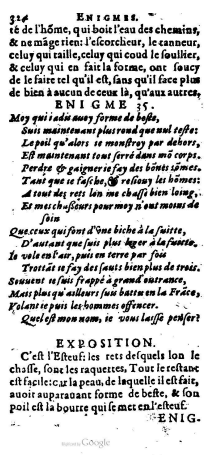 324 ENIGMES.
té de l'hôme, qui boit l'eau des chemins,
& ne mâge rien: l'escorcheur, le tanneur,
celuy qui taille, celuy qui coud le soullier,
& celuy qui en fait la forme, ont soucy
de le faire tel qu'il est, sans qu'il face plus
de bien à aucun de ceux là, qu'aux autres.
ENIGME 35.
Moy qui iadis auoy forme de beste,
Suis maintenant plus rond que nul teste:
Le poil qu'alors se monstroy par dehors,
Est maintenant tout serré dans mô corps.
Perdre & gaigner ie fay des bônts sômes.
Tant que ie fasche, & resiouy les hômes:
A tout des rets lon me chasse bien loing,
Et mes chasseurs pour moy n'ont moins de
soin
Que ceux qui font d'one biche à la suitte,
D'autant que suis plus leger à la fuitte.
Ie vole en l'air, puis en terre par fois
Trottât ie fay des sauts bien plus de trois.
Souuent ie suis frappé à grand outrance,
Mais plus qu'ailleurs suis battu en la Frâce,
Volant ie puis les hommes offencer.
Quel est mon nom, ie vous laisse penser?
EXPOSITION.
C'est l'Esteuf: les rets desquels lon le
chasse, sont les raquettes, Tout le restant
est facile: car la peau, de laquelle il est fait,
auoit auparauant forme de beste, & son
poil est la bourre qui se met en l'esteuf.
ENIG-
Google